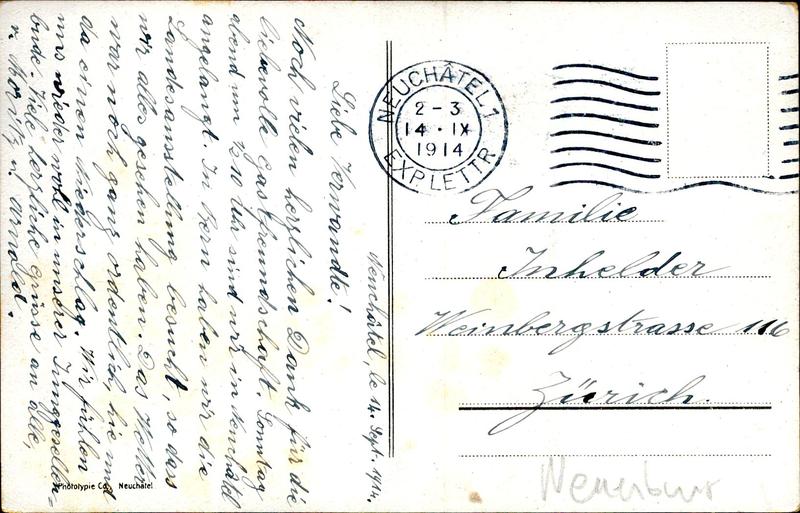 Neuchâtel, le 14. Sept. 1914.
Liebe Verwandte!
Noch vielen herzlichen Dank für die
liebevolle Gastfreundschaft. Sonntag
abend um ½ 10 Uhr sind wir in Neuchâtel
angelangt. In Bern haben wir die
Landesausstellung besucht, so dass
wir alles gesehen haben. Das Wetter
war noch ganz ordentlich, hie und
da einen Niederschlag. Wir fühlen
uns wieder wohl in unserer Junggesellen-
bude. Viele herzliche Grüsse an alle,
v. Moritz u. Arnold.
Phototypie Co., Neuchâtel
NEUCHÂTEL 1
2-3
14 · IX
1914
EXP. LETTR.
Familie
Inhelder
Weinbergstrasse 116
Zürich.